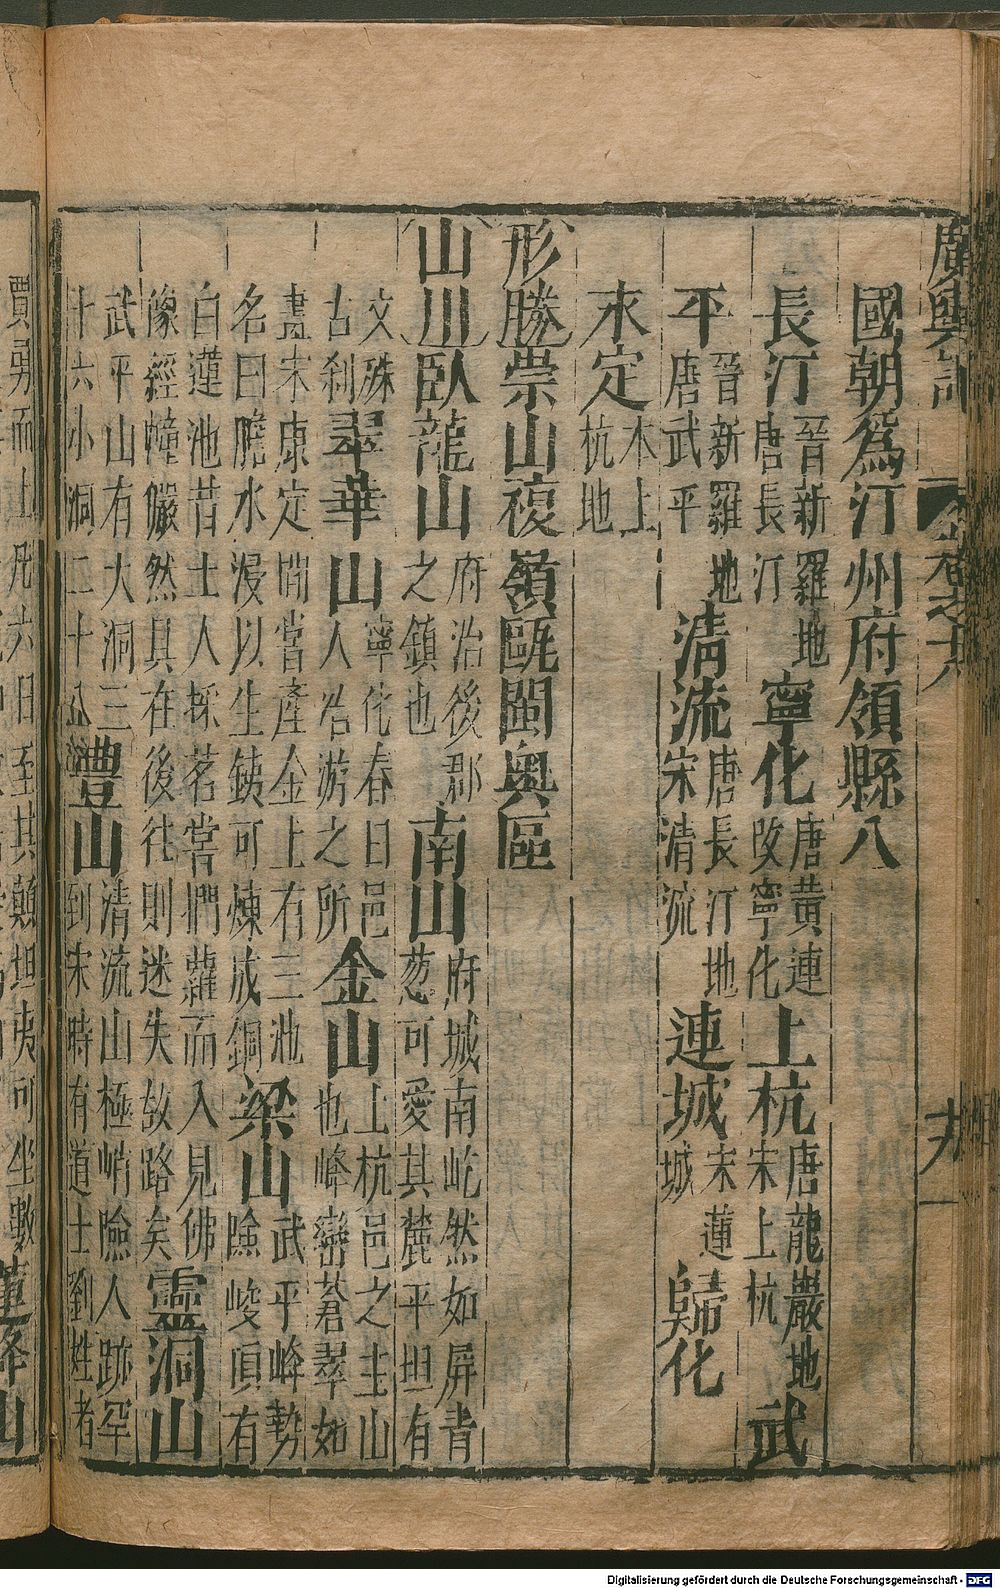 廣輿記 卷之十八 十九
國朝爲汀州府領縣八
長汀 晉新羅地唐長汀 寧化 唐黃連改寧化 上杭 唐龍巖地宋上杭 武
平 晉新羅地唐武平 清流 唐長汀地宋清流 連城 宋蓮城 歸化
永定 本上杭地
形勝 崇山複嶺甌閩奧區
山川 臥龍山 府治後郡之鎮也 南山 府城南屹然如屏青葱可愛其麓平坦有
文殊古刹 翠華山 寧化春日邑人浩游之所 金山 上杭邑之主山也峰巒蒼翠如
畫宋康定間嘗產金上有三池名曰膽水浸以生鐵可煉成銅 梁山 武平峰勢險峻頂有
白蓮池昔土人採茗嘗捫蘿而入見佛像經幢儼然具在後往則迷失故路矣 靈洞山
武平山有大洞三十六小洞二十八 豊山 清流山極峭險人跡罕到宋時有道士劉姓者
賈勇而上 至其顛坦夷可坐數
Digitalisierung gefördert durch die Deutsche Forschungsgemeinschaft - DFG